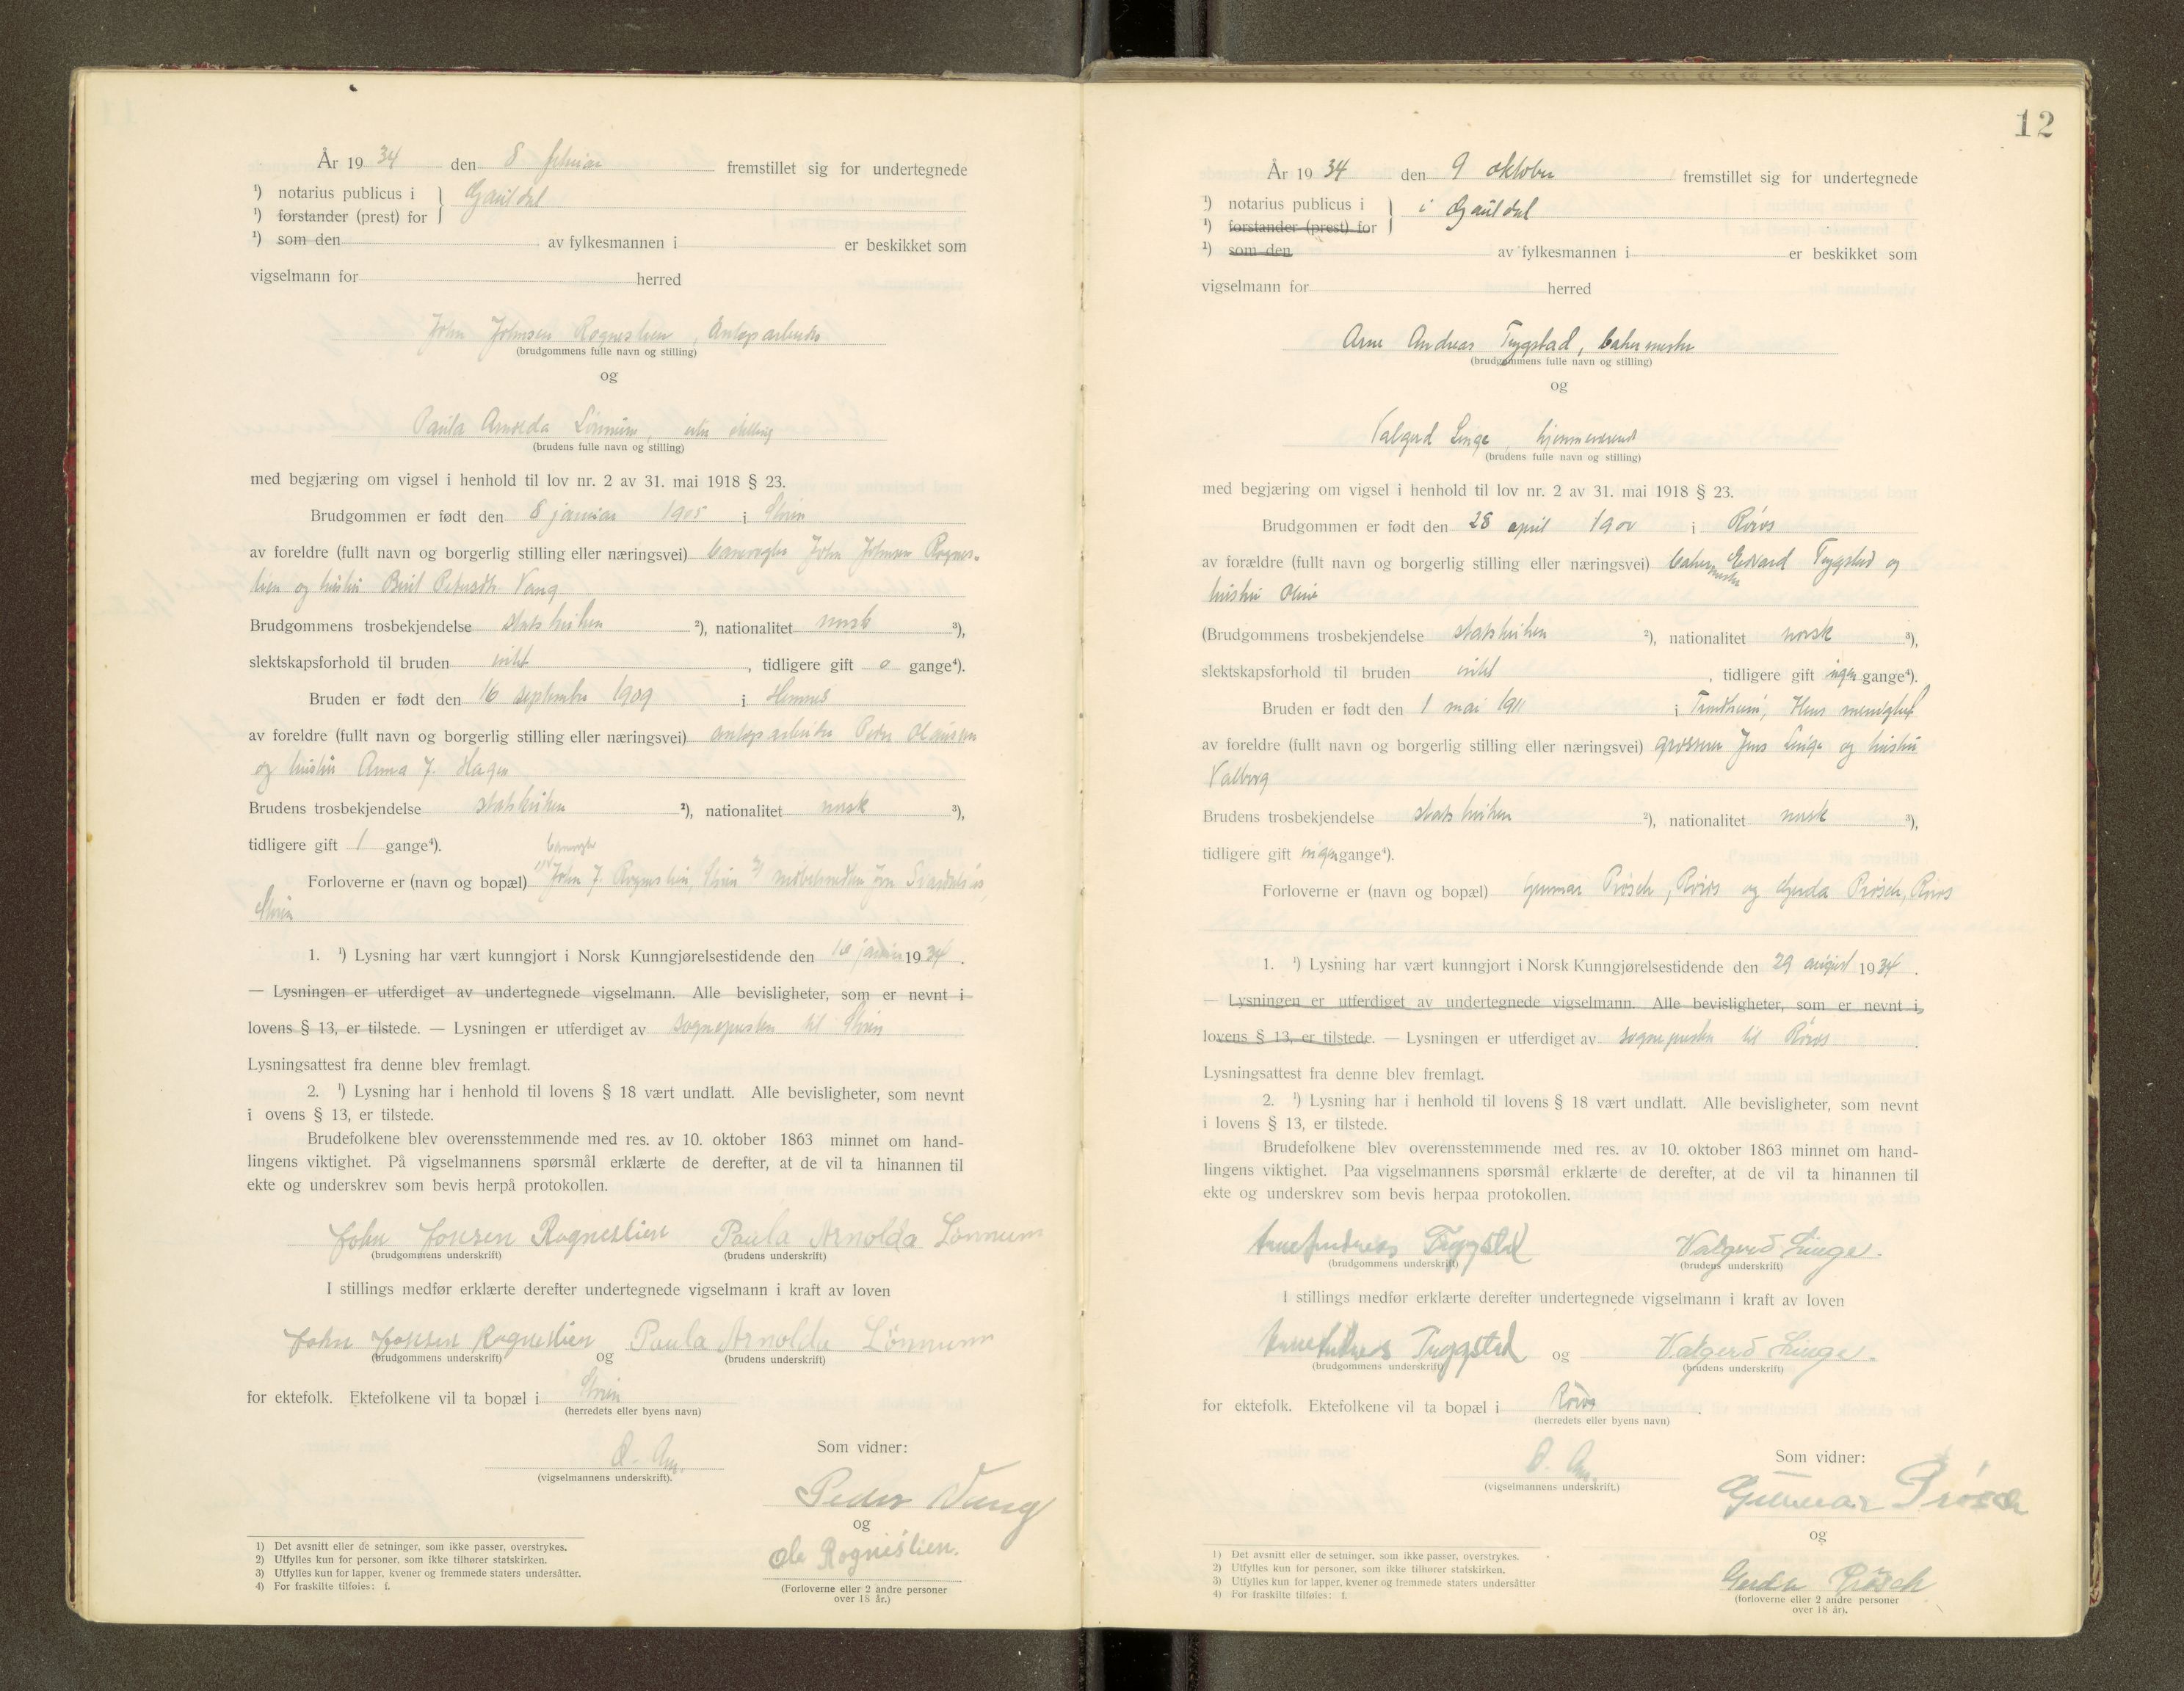 År 1934 den 8 februar fremstillet sig for undertegnede
¹) notarius publicus i } Gauldal
¹) forstander (prest) for
¹) som den av fylkesmannen i er beskikket som
vigselmann for herred
John Johnsen Rogneslien, Anlegsarbeider
(brudgommens fulle navn og stilling)
og
Paula Arnolda Lønnum, uten stilling
(brudens fulle navn og stilling)
med begjæring om vigsel i henhold til lov nr. 2 av 31. mai 1918 § 23.
Brudgommen er født den 8 januar 1905 i Støren
av foreldre (fullt navn og borgerlig stilling eller næringsvei) banevogter John Johnsen Rognes-
lien og hustru Berit Petersdtr. Vang
Brudgommens trosbekjendelse statskirken ²), nationalitet norsk ³),
slektskapsforhold til bruden intet , tidligere gift 0 gange⁴).
Bruden er født den 16 september 1909 i Hemnes
av foreldre (fullt navn og borgerlig stilling eller næringsvei) anlegsarbeider Peder Olaussen
og hustru Anna J. Hagen
Brudens trosbekjendelse statskirken ²), nationalitet norsk ³),
tidligere gift 1 gange⁴).
banevogter
Forloverne er (navn og bopæl) 1) John J. Rogneslien, Støren 2)
Støren
1. ¹) Lysning har vært kunngjort i Norsk Kunngjørelsestidende den 10 januar 1934.
— Lysningen er utferdiget av undertegnede vigselmann. Alle bevisligheter, som er nevnt i
lovens § 13, er tilstede. — Lysningen er utferdiget av sognepresten til Støren
Lysningsattest fra denne blev fremlagt.
2. ¹) Lysning har i henhold til lovens § 18 vært undlatt. Alle bevisligheter, som nevnt
i ovens § 13, er tilstede.
Brudefolkene blev overensstemmende med res. av 10. oktober 1863 minnet om hand-
lingens viktighet. På vigselmannens spørsmål erklærte de derefter, at de vil ta hinannen til
ekte og underskrev som bevis herpå protokollen.
John Jonsen Rogneslien Paula Arnolda Lønnum
(brudgommens underskrift) (brudens underskrift)
I stillings medfør erklærte derefter undertegnede vigselmann i kraft av loven
John Jonsen Rogneslien og Paula Arnolda Lønnum
(brudgommens underskrift) (brudens underskrift)
for ektefolk. Ektefolkene vil ta bopæl i Støren
(herredets eller byens navn)
Som vidner:
(vigselmannens underskrift).
Peder Vang
og
Ole Rogneslien.
(Forloverne eller 2 andre personer
over 18 år.)
1) Det avsnitt eller de setninger, som ikke passer, overstrykes.
2) Utfylles kun for personer, som ikke tilhører statskirken.
3) Utfylles kun for lapper, kvener og fremmede staters undersåtter.
4) For fraskilte tilføies: f.
12
År 1934 den 9 oktober fremstillet sig for undertegnede
¹) notarius publicus i } i Gauldal
¹) forstander (prest) for
¹) som den av fylkesmannen i er beskikket som
vigselmann for herred
Arne Andreas Trygstad, bakermester
(brudgommens fulle navn og stilling)
og
Valgerd Linge, hjemmeværende
(brudens fulle navn og stilling)
med begjæring om vigsel i henhold til lov nr. 2 av 31. mai 1918 § 23.
Brudgommen er født den 28 april 1900 i Røros
av forældre (fullt navn og borgerlig stilling eller næringsvei) bakermester Edvard Trygstad og
hustru Oline
(Brudgommens trosbekjendelse statskirken ²), nationalitet norsk ³),
slektskapsforhold til bruden intet , tidligere gift ingen gange⁴).
Bruden er født den 1 mai 1911 i Trondheim, Hens menighet
av foreldre (fullt navn og borgerlig stilling eller næringsvei) grosserer Jens Linge og hustru
Valborg
Brudens trosbekjendelse statskirken ²), nationalitet norsk ³),
tidligere gift ingen gange⁴).
Forloverne er (navn og bopæl) Gunnar Prøsch, Røros og Gerda Prøsch, Røros
1. ¹) Lysning har vært kunngjort i Norsk Kunngjørelsestidende den 29 august 1934.
— Lysningen er utferdiget av undertegnede vigselmann. Alle bevisligheter, som er nevnt i
lovens § 13, er tilstede. — Lysningen er utferdiget av sognepresten til Røros
Lysningsattest fra denne blev fremlagt.
2. ¹) Lysning har i henhold til lovens § 18 vært undlatt. Alle bevisligheter, som nevnt
i lovens § 13, er tilstede.
Brudefolkene blev overensstemmende med res. av 10. oktober 1863 minnet om hand-
lingens viktighet. Paa vigselmannens spørsmål erklærte de derefter, at de vil ta hinannen til
ekte og underskrev som bevis herpaa protokollen.
Arne Andreas Trygstad Valgerd Linge.
(brudgommens underskrift) (brudens underskrift)
I stillings medfør erklærte derefter undertegnede vigselmann i kraft av loven
Arne Andreas Trygstad og Valgerd Linge.
(brudgommens underskrift) (brudens underskrift)
for ektefolk. Ektefolkene vil ta bopæl i Røros
(herredets eller byens navn)
Som vidner:
(vigselmannens underskrift.)
Gunnar Prøsch
og
Gerda Prøsch
(forloverne eller 2 andre personer
over 18 år).
1) Det avsnitt eller de setninger, som ikke passer, overstrykes.
2) Utfylles kun for personer, som ikke tilhører statskirken.
3) Utfylles kun for lapper, kvener og fremmede staters undersåtter
4) For fraskilte tilføies: f.